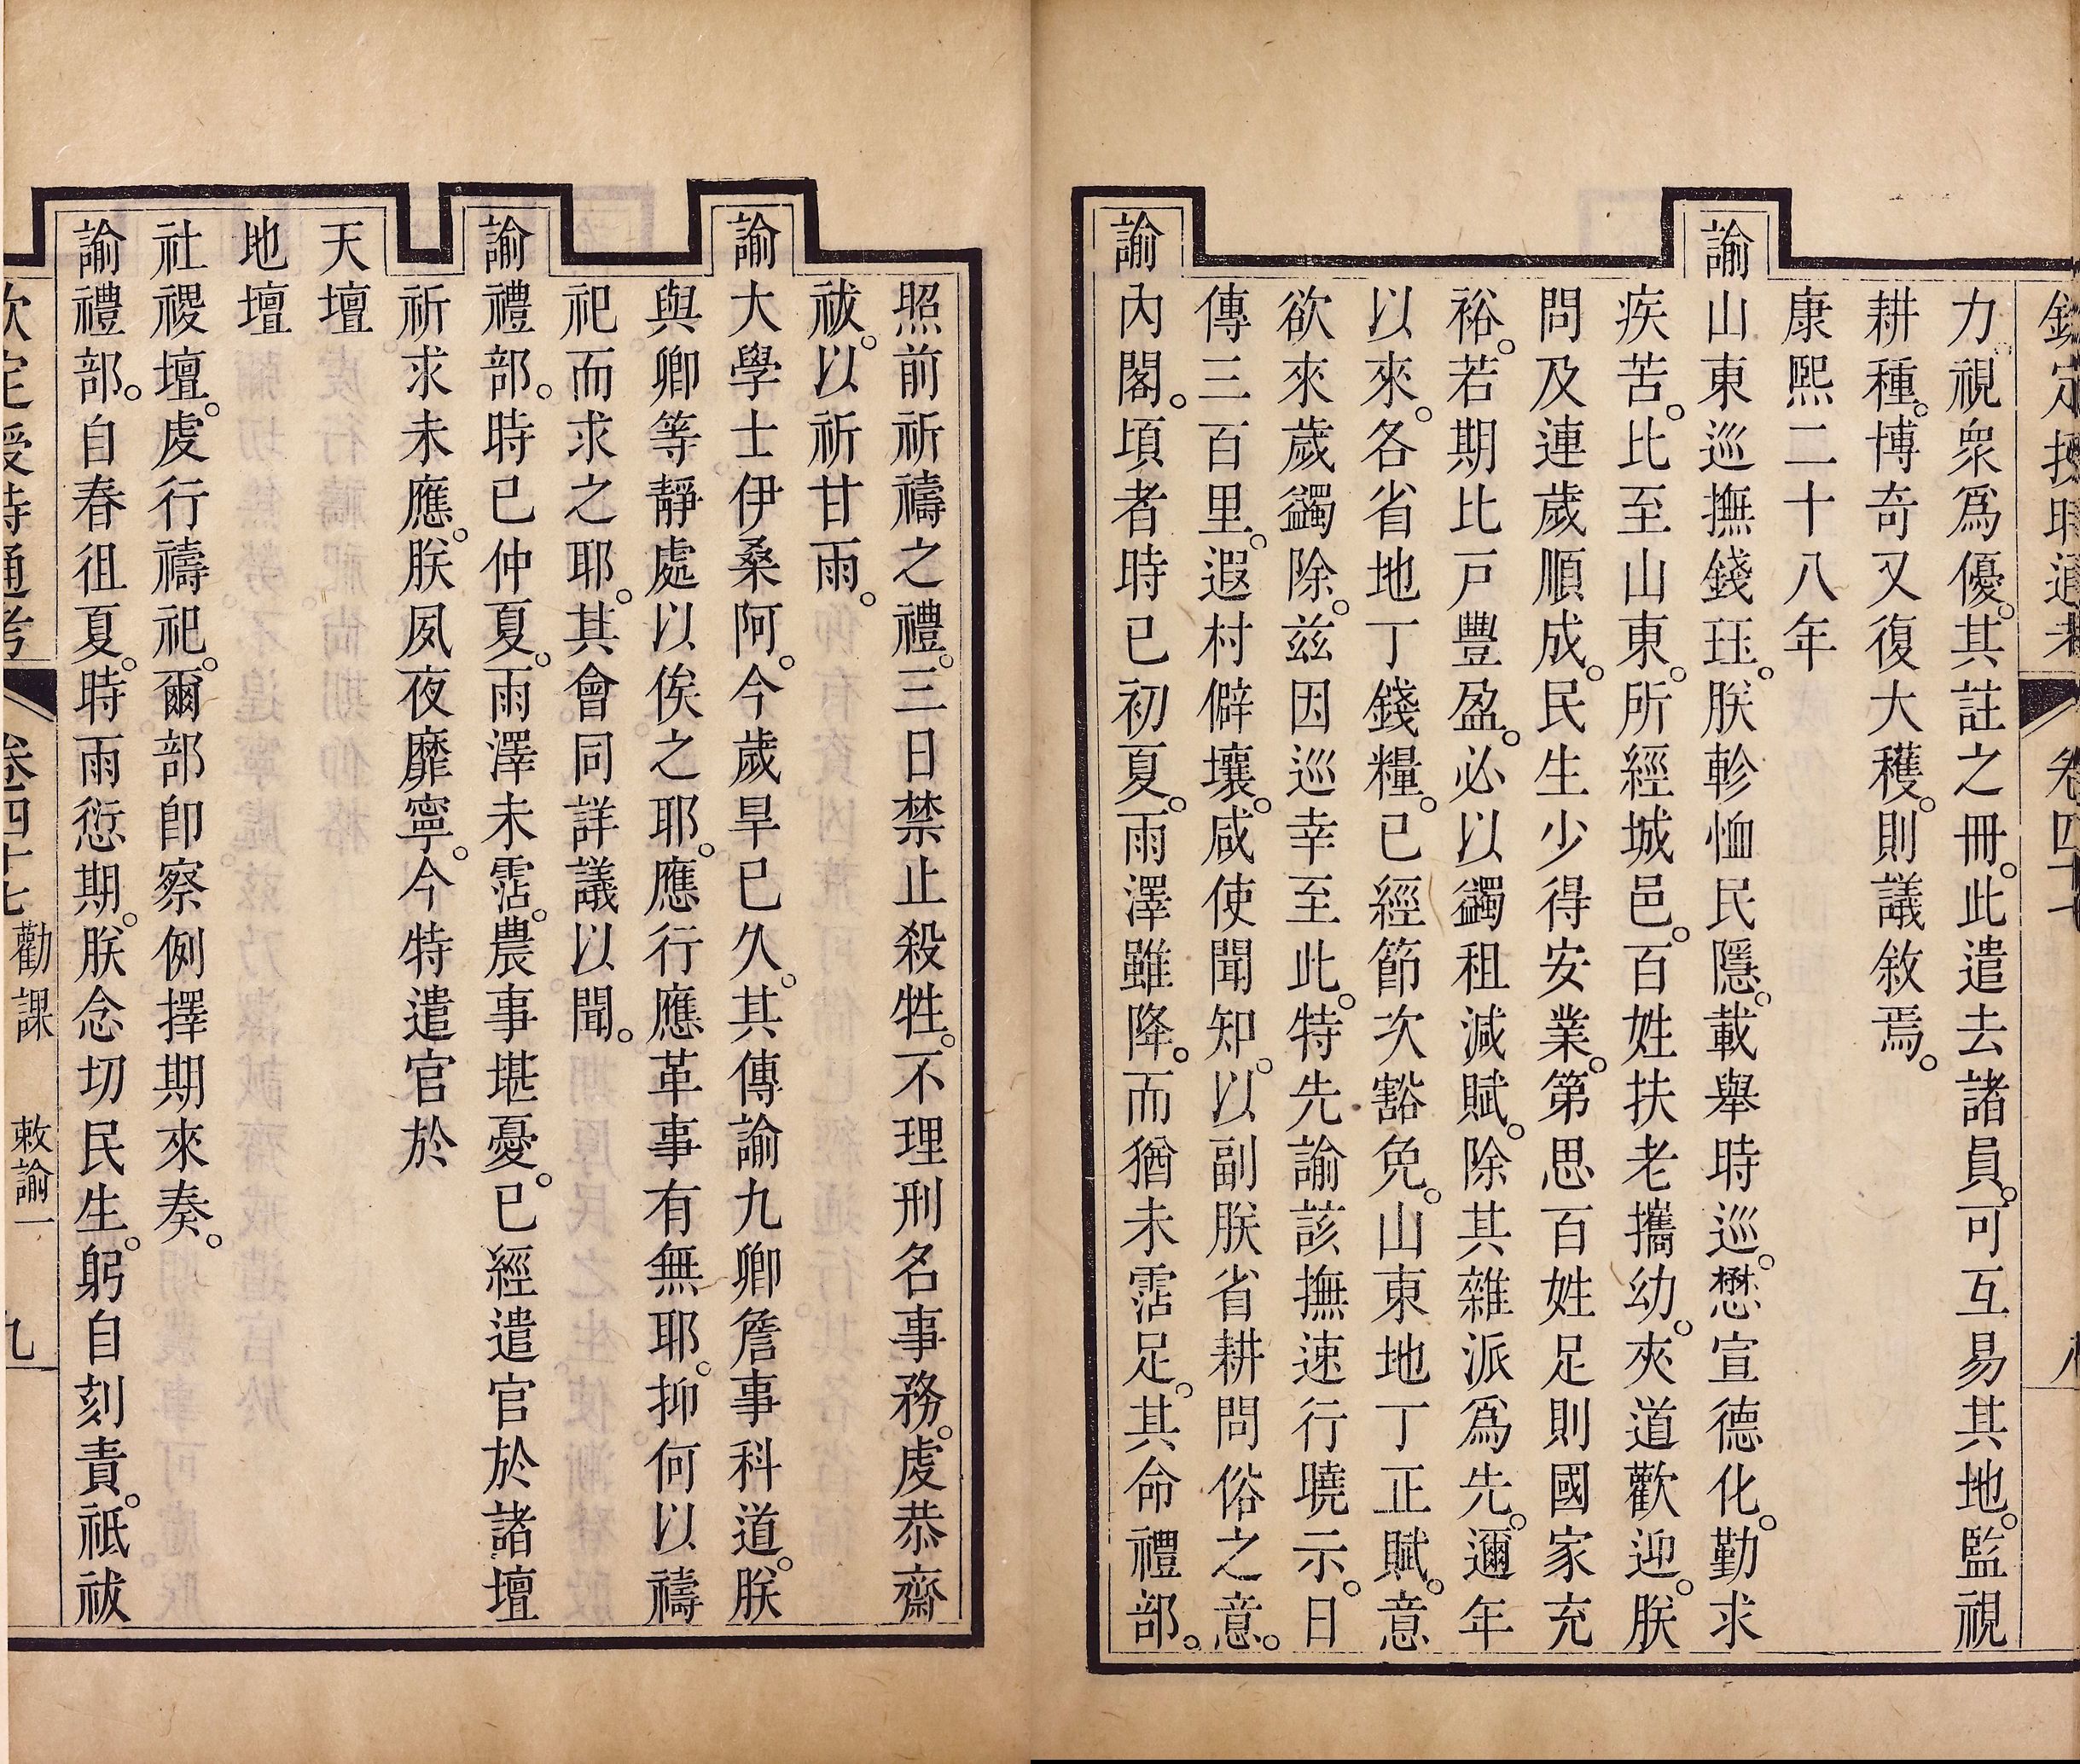 欽定授時通考 卷四十七 八
力視衆爲優。其註之冊。此遣去諸員。可互易其地。監視
耕種。博奇又復大穫。則議敘焉。
康熙二十八年
諭山東巡撫錢珏。朕軫恤民隱。載舉時巡。懋宣德化。勤求
疾苦。比至山東。所經城邑。百姓扶老攜幼。夾道歡迎。朕
問及連歲順成。民生少得安業。第思百姓足則國家充
裕。若期比戸豐盈。必以蠲租減賦。除其雜派爲先。邇年
以來。各省地丁錢糧。已經節次豁免。山東地丁正賦。意
欲來歲蠲除。兹因巡幸至此。特先諭該撫速行曉示。日
傳三百里。遐村僻壤。咸使聞知。以副朕省耕問俗之意。
諭內閣。頃者時已初夏。雨澤雖降。而猶未霑足。其命禮部。
照前祈禱之禮。三日禁止殺牲。不理刑名事務。虔恭齋
祓。以祈甘雨。
諭大學士伊桑阿。今歲旱已久。其傳諭九卿詹事科道。朕
與卿等靜處以俟之耶。應行應革事有無耶。抑何以禱
祀而求之耶。其會同詳議以聞。
諭禮部。時已仲夏。雨澤未霑。農事堪憂。已經遣官於諸壇
祈求未應。朕夙夜靡寧。今特遣官於
天壇
地壇
社稷壇。虔行禱祀。爾部卽察例擇期來奏。
諭禮部。自春徂夏。時雨愆期。朕念切民生。躬自刻責。祗祓
欽定授時通考 卷四十七 勸課 敕諭一 九